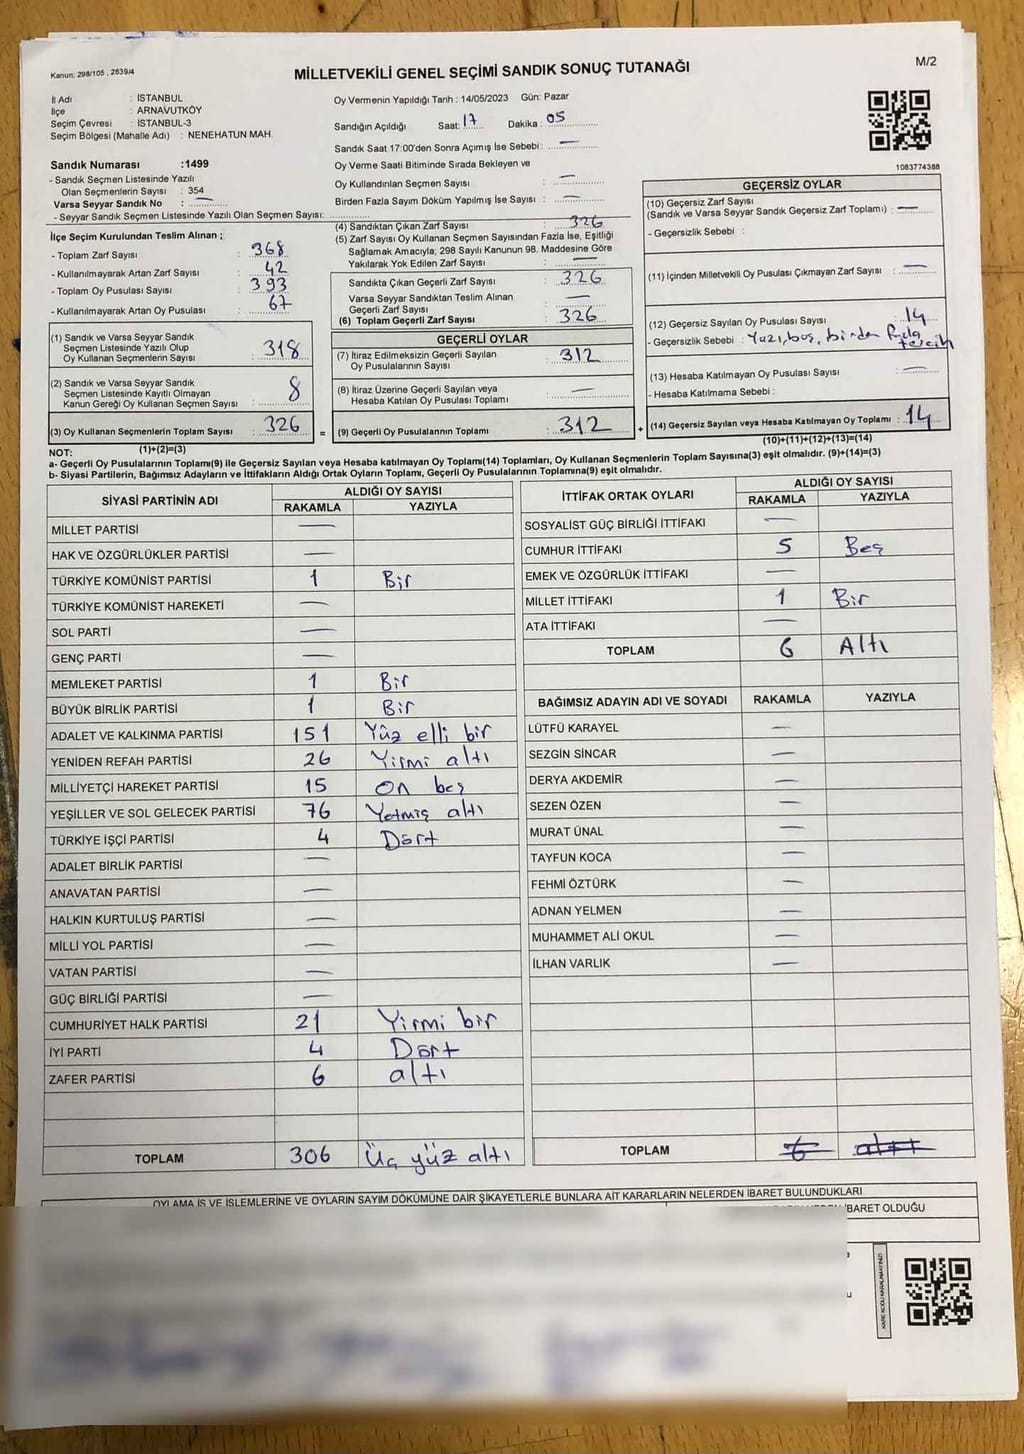 Kanun: 298/105 , 2839/4
MİLLETVEKİLİ GENEL SEÇİMİ SANDIK SONUÇ TUTANAĞI
M/2
İl Adı : İSTANBUL
İlçe : ARNAVUTKÖY
Seçim Çevresi : İSTANBUL-3
Seçim Bölgesi (Mahalle Adı) : NENEHATUN MAH.
Oy Vermenin Yapıldığı Tarih : 14/05/2023 Gün: Pazar
Sandığın Açıldığı Saat: 17 Dakika : 05
Sandık Saat 17:00'den Sonra Açımış İse Sebebi : —
Oy Verme Saati Bitiminde Sırada Bekleyen ve
Oy Kullandırılan Seçmen Sayısı : —
Birden Fazla Sayım Döküm Yapılmış İse Sayısı : —
1083774388
Sandık Numarası :1499
- Sandık Seçmen Listesinde Yazılı
Olan Seçmenlerin Sayısı : 354
Varsa Seyyar Sandık No : —
- Seyyar Sandık Seçmen Listesinde Yazılı Olan Seçmen Sayısı:
İlçe Seçim Kurulundan Teslim Alınan ;
- Toplam Zarf Sayısı : 368
- Kullanılmayarak Artan Zarf Sayısı : 42
- Toplam Oy Pusulası Sayısı : 393
- Kullanılmayarak Artan Oy Pusulası : 67
(1) Sandık ve Varsa Seyyar Sandık
Seçmen Listesinde Yazılı Olup
Oy Kullanan Seçmenlerin Sayısı : 318
(2) Sandık ve Varsa Seyyar Sandık
Seçmen Listesinde Kayıtlı Olmayan
Kanun Gereği Oy Kullanan Seçmen Sayısı : 8
(3) Oy Kullanan Seçmenlerin Toplam Sayısı : 326
(1)+(2)=(3)
(4) Sandıktan Çıkan Zarf Sayısı : 326
(5) Zarf Sayısı Oy Kullanan Seçmen Sayısından Fazla İse, Eşitliği
Sağlamak Amacıyla, 298 Sayılı Kanunun 98. Maddesine Göre
Yakılarak Yok Edilen Zarf Sayısı : —
Sandıkta Çıkan Geçerli Zarf Sayısı : 326
Varsa Seyyar Sandıktan Teslim Alınan
Geçerli Zarf Sayısı : —
(6) Toplam Geçerli Zarf Sayısı : 326
GEÇERLİ OYLAR
(7) İtiraz Edilmeksizin Geçerli Sayılan
Oy Pusulalarının Sayısı : 312
(8) İtiraz Üzerine Geçerli Sayılan veya
Hesaba Katılan Oy Pusulası Toplamı : —
= (9) Geçerli Oy Pusulalarının Toplamı : 312 +
GEÇERSİZ OYLAR
(10) Geçersiz Zarf Sayısı
(Sandık ve Varsa Seyyar Sandık Geçersiz Zarf Toplamı) : —
- Geçersizlik Sebebi :
(11) İçinden Milletvekili Oy Pusulası Çıkmayan Zarf Sayısı : —
(12) Geçersiz Sayılan Oy Pusulası Sayısı : 14
- Geçersizlik Sebebi : Yazı, boş, birden fazla
tercih
(13) Hesaba Katılmayan Oy Pusulası Sayısı : —
- Hesaba Katılmama Sebebi :
(14) Geçersiz Sayılan veya Hesaba Katılmayan Oy Toplamı : 14
(10)+(11)+(12)+(13)=(14)
NOT:
a- Geçerli Oy Pusulalarının Toplamı(9) ile Geçersiz Sayılan veya Hesaba katılmayan Oy Toplamı(14) Toplamları, Oy Kullanan Seçmenlerin Toplam Sayısına(3) eşit olmalıdır. (9)+(14)=(3)
b- Siyasi Partilerin, Bağımsız Adayların ve İttifakların Aldığı Ortak Oyların Toplamı, Geçerli Oy Pusulalarının Toplamına(9) eşit olmalıdır.
SİYASİ PARTİNİN ADI ALDIĞI OY SAYISI
RAKAMLA YAZIYLA
MİLLET PARTİSİ —
HAK VE ÖZGÜRLÜKLER PARTİSİ —
TÜRKİYE KOMÜNİST PARTİSİ 1 Bir
TÜRKİYE KOMÜNİST HAREKETİ —
SOL PARTİ —
GENÇ PARTİ —
MEMLEKET PARTİSİ 1 Bir
BÜYÜK BİRLİK PARTİSİ 1 Bir
ADALET VE KALKINMA PARTİSİ 151 Yüz elli bir
YENİDEN REFAH PARTİSİ 26 Yirmi altı
MİLLİYETÇİ HAREKET PARTİSİ 15 On beş
YEŞİLLER VE SOL GELECEK PARTİSİ 76 Yetmiş altı
TÜRKİYE İŞÇİ PARTİSİ 4 Dört
ADALET BİRLİK PARTİSİ —
ANAVATAN PARTİSİ —
HALKIN KURTULUŞ PARTİSİ —
MİLLİ YOL PARTİSİ —
VATAN PARTİSİ —
GÜÇ BİRLİĞİ PARTİSİ —
CUMHURİYET HALK PARTİSİ 21 Yirmi bir
İYİ PARTİ 4 Dört
ZAFER PARTİSİ 6 altı
TOPLAM 306 Üç yüz altı
İTTİFAK ORTAK OYLARI ALDIĞI OY SAYISI
RAKAMLA YAZIYLA
SOSYALİST GÜÇ BİRLİĞİ İTTİFAKI —
CUMHUR İTTİFAKI 5 Beş
EMEK VE ÖZGÜRLÜK İTTİFAKI —
MİLLET İTTİFAKI 1 Bir
ATA İTTİFAKI —
TOPLAM 6 Altı
BAĞIMSIZ ADAYIN ADI VE SOYADI RAKAMLA YAZIYLA
LÜTFÜ KARAYEL —
SEZGİN SİNCAR —
DERYA AKDEMİR —
SEZEN ÖZEN —
MURAT ÜNAL —
TAYFUN KOCA —
FEHMİ ÖZTÜRK —
ADNAN YELMEN —
MUHAMMET ALİ OKUL —
İLHAN VARLIK —
TOPLAM 6 altı
OYLAMA İŞ VE İŞLEMLERİNE VE OYLARIN SAYIM DÖKÜMÜNE DAİR ŞİKAYETLERLE BUNLARA AİT KARARLARIN NELERDEN İBARET BULUNDUKLARI
İBARET OLDUĞU
KARE KODU KARALAMAYINIZ!